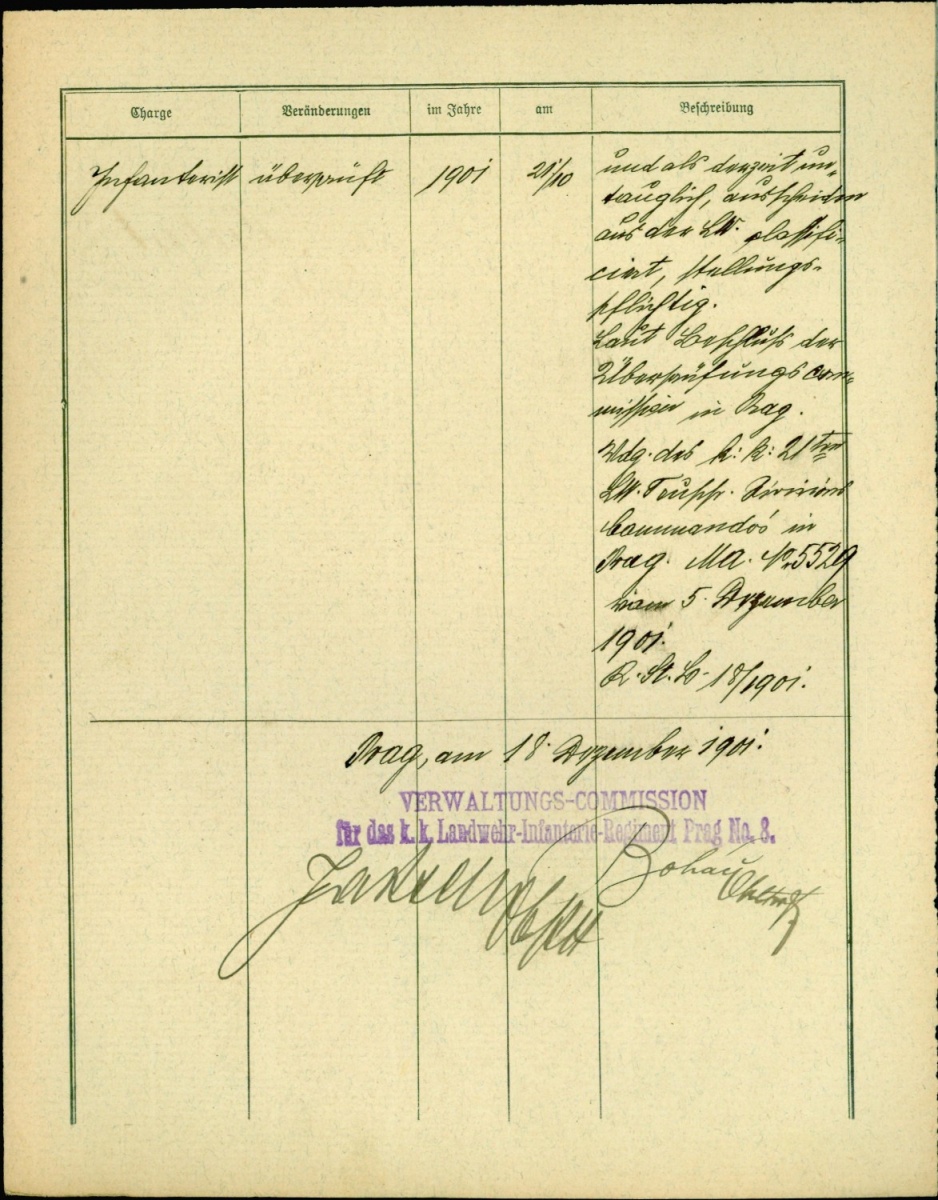 Charge Veränderungen im Jahre am Beschreibung
Infanterist überprüft 1901 21/10 und als derzeit un-
tauglich, ausscheiden
aus der LW. classifi-
cirt, stellungs-
pflichtig.
Laut Beschluß der
Überprüfungscom-
mission in Prag.
Vdg. des k: k: 21ten
LW. Trupp. Divisions
Commando's in
Prag. MA. No 5529
vom 5. Dezember
1901.
R. St. B. 18/1901.
Prag, am 18 Dezember 1901.
VERWALTUNGS-COMMISSION
für das k. k. Landwehr-Infanterie-Regiment Prag No. 8.
Obst